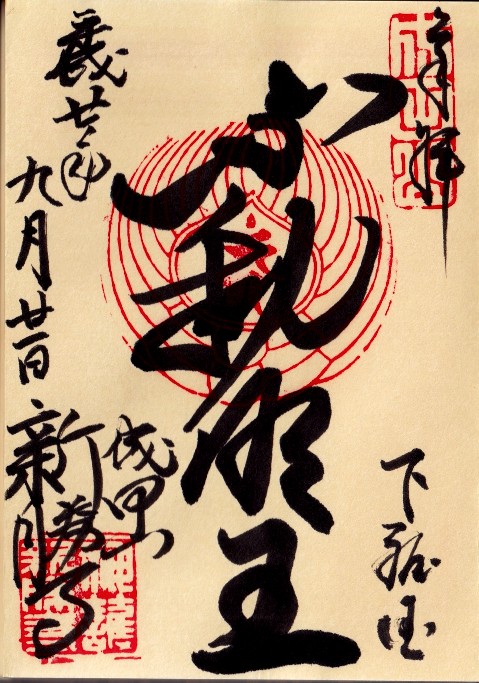 奉拝
下総国
不動明王
成田山
新勝寺
平成廿年
九月廿一日